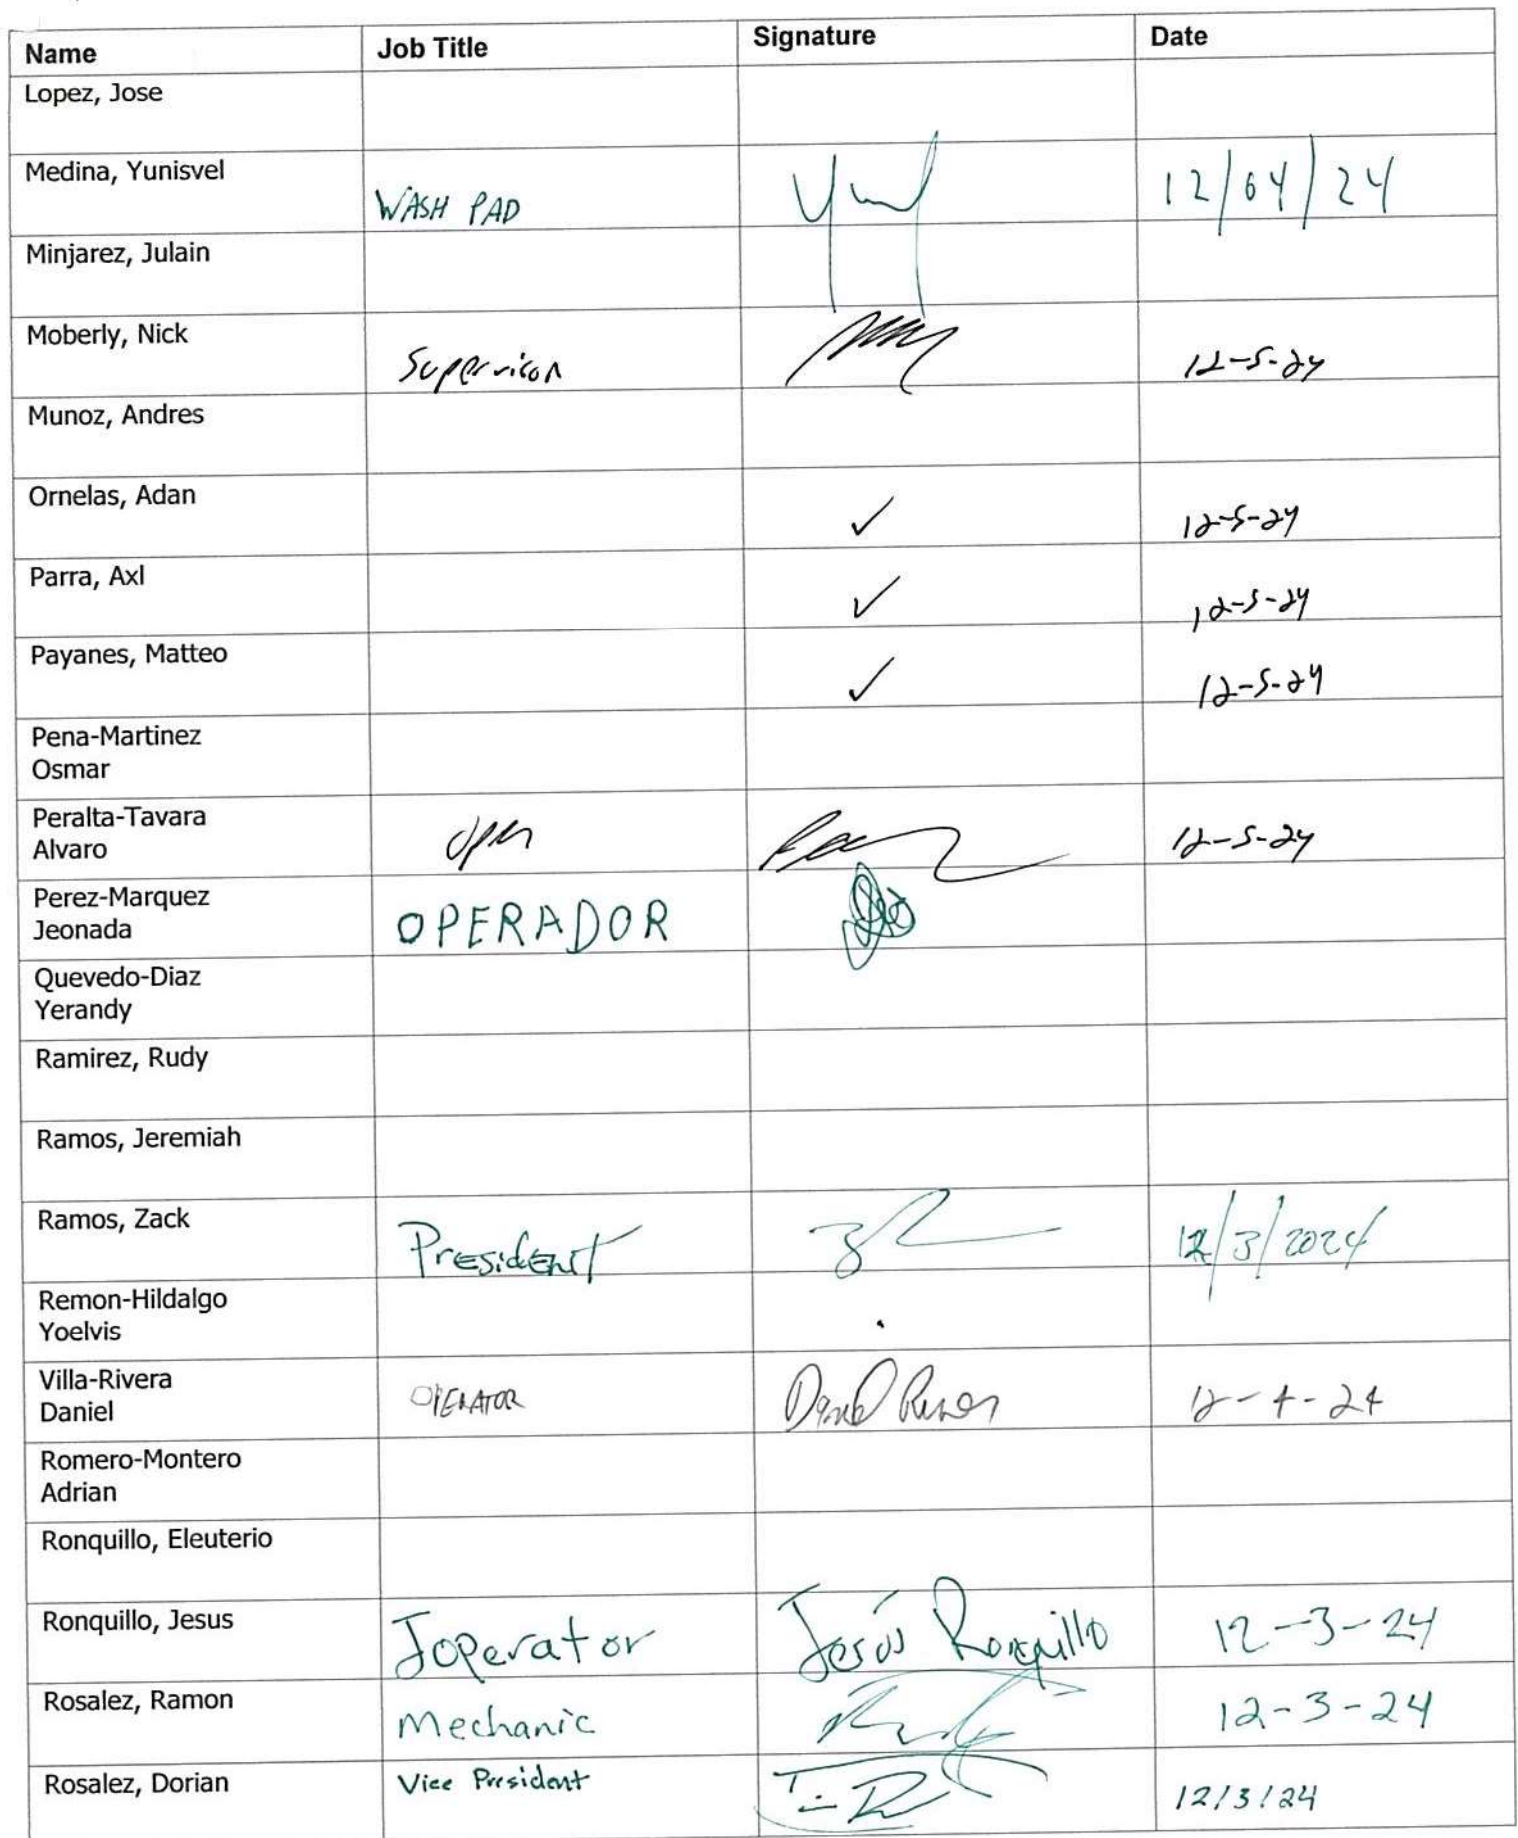 Name Job Title Signature Date
Lopez, Jose
Medina, Yunisvel
WASH PAD 12/04/24
Minjarez, Julain
Moberly, Nick
Supervison 12-5-24
Munoz, Andres
Ornelas, Adan
✓ 12-5-24
Parra, Axl
✓ 12-5-24
Payanes, Matteo
✓ 12-5-24
Pena-Martinez
Osmar
Peralta-Tavara
Alvaro 12-5-24
Perez-Marquez
Jeonada OPERADOR
Quevedo-Diaz
Yerandy
Ramirez, Rudy
Ramos, Jeremiah
Ramos, Zack
President 12/3/2024
Remon-Hildalgo
Yoelvis
Villa-Rivera
Daniel OPERATOR 12-4-24
Romero-Montero
Adrian
Ronquillo, Eleuterio
Ronquillo, Jesus
Joperator Jesús Ronquillo 12-3-24
Rosalez, Ramon
Mechanic 12-3-24
Rosalez, Dorian
Vice President 12/3/24